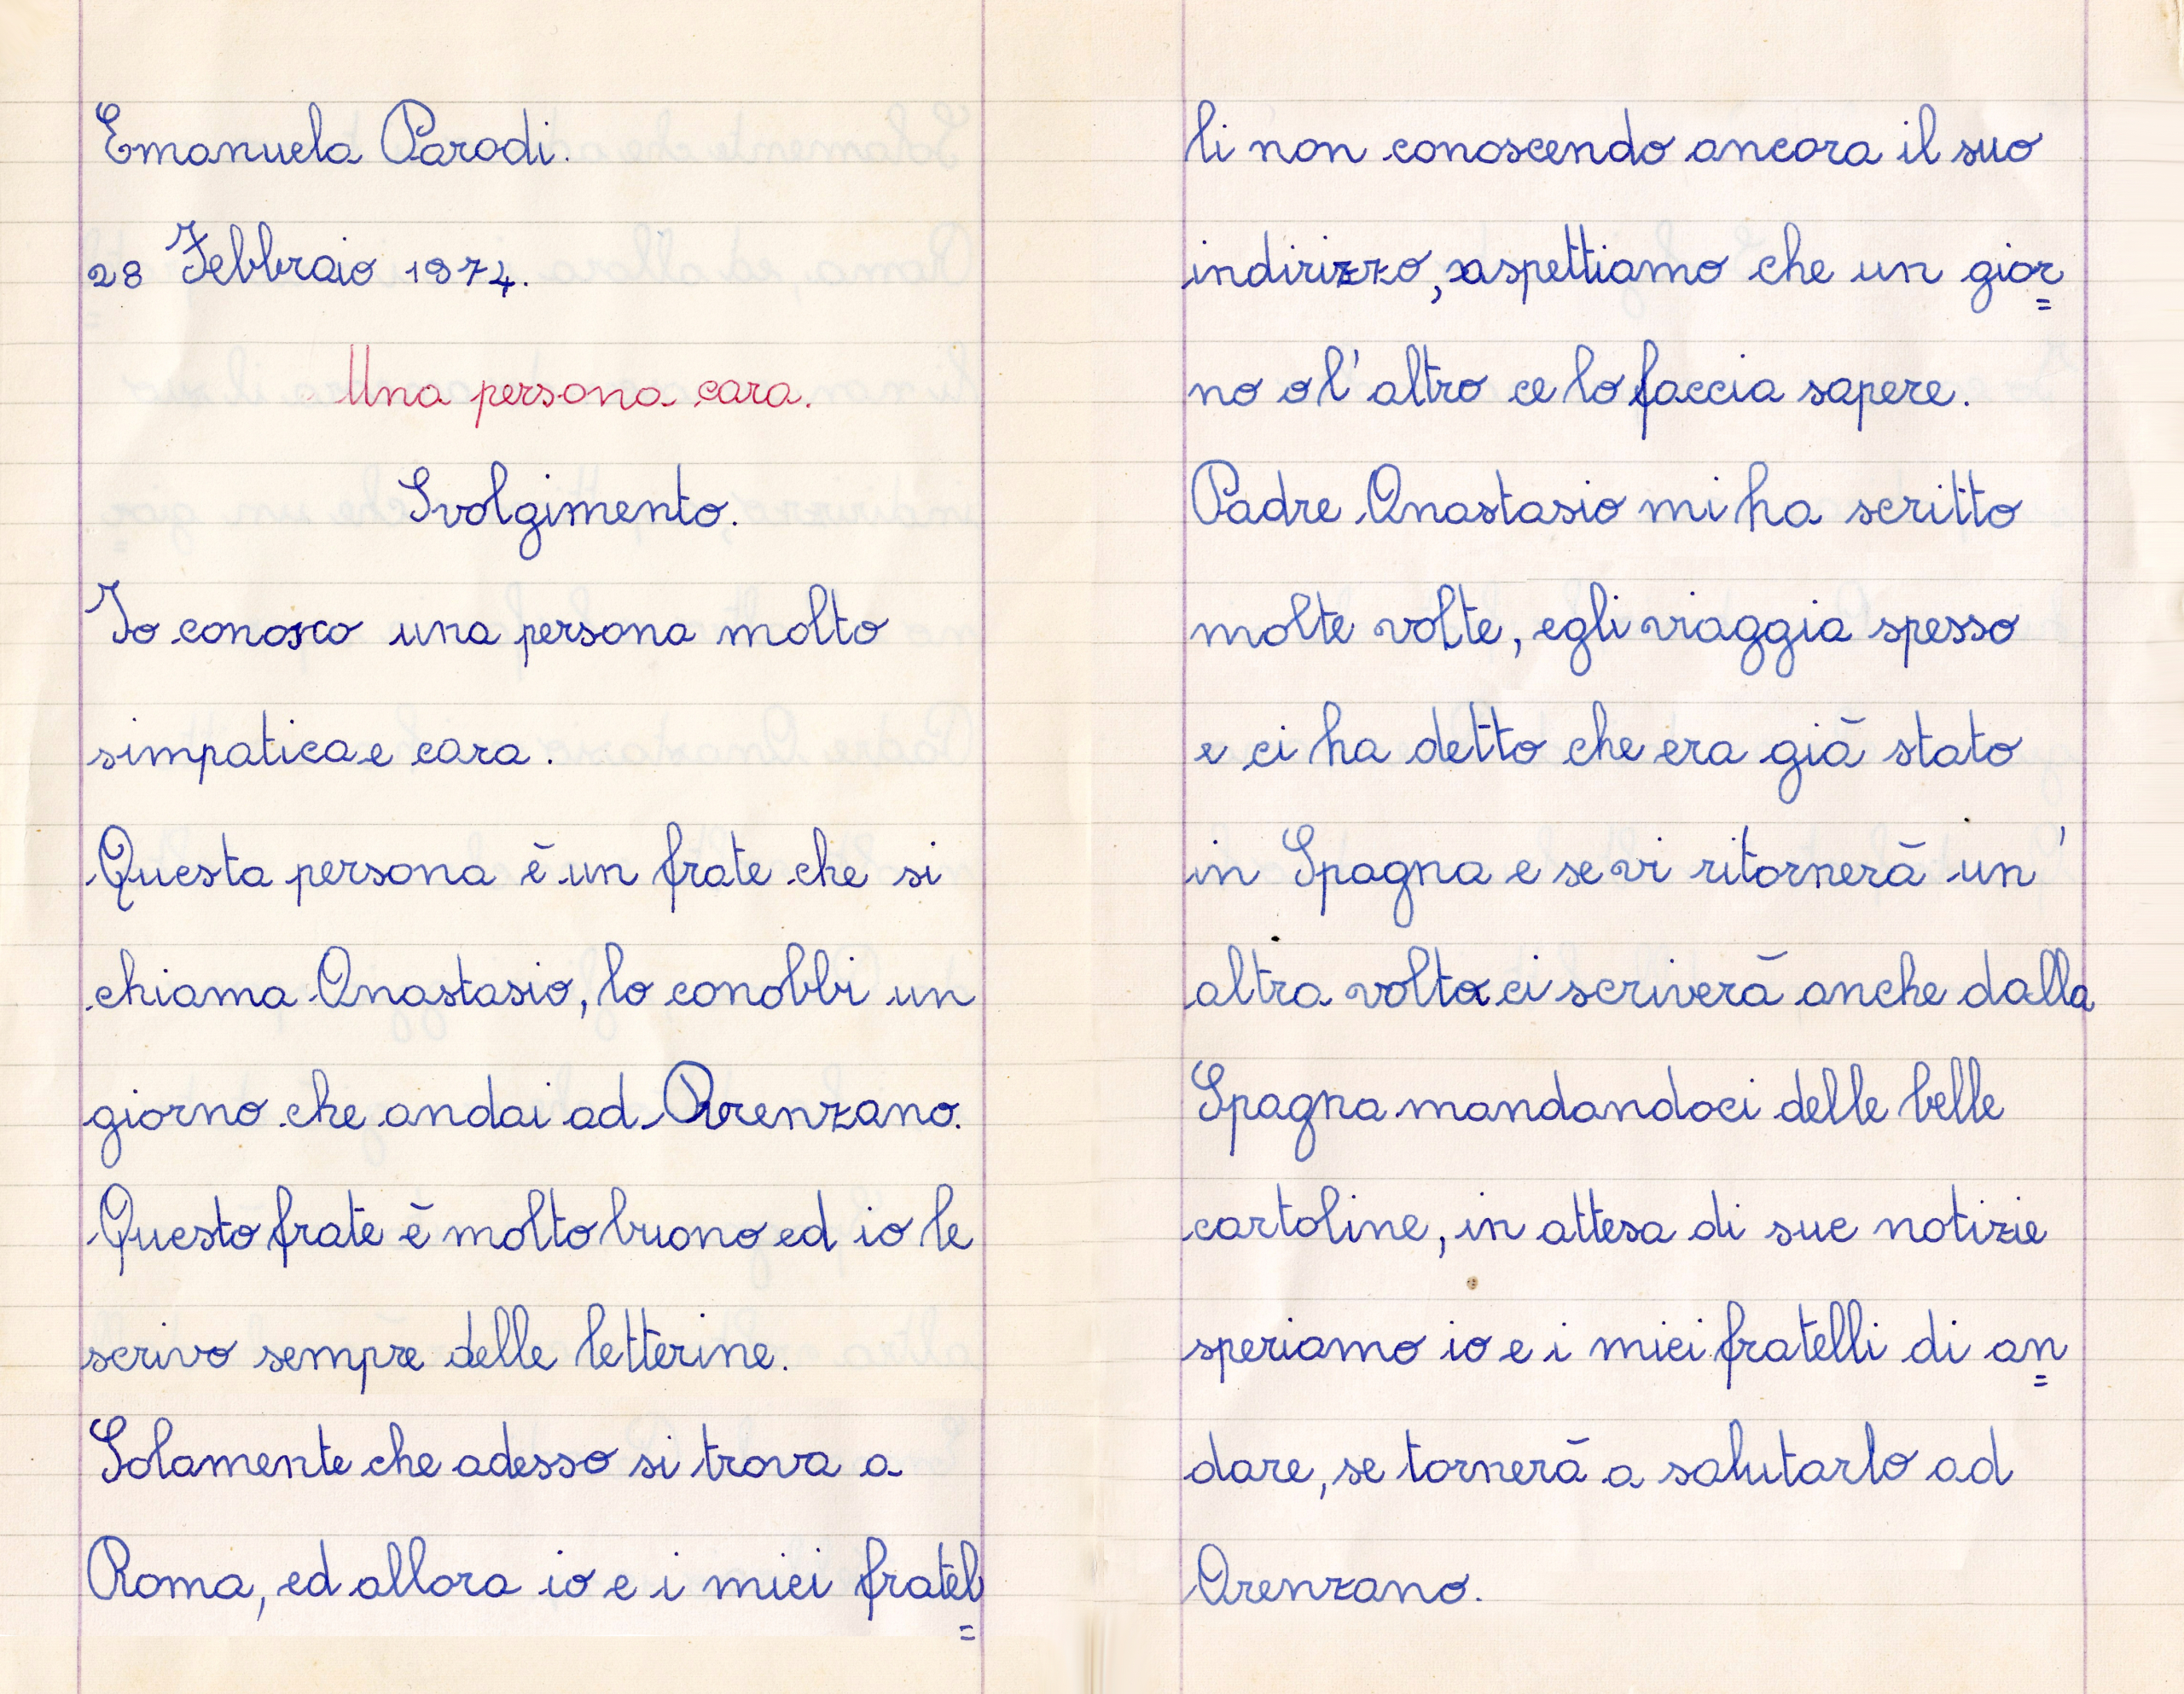 Emanuela Parodi.
28 Febbraio 1974.
Una persona cara.
Svolgimento.
Io conosco una persona molto
simpatica e cara.
Questa persona è un frate che si
chiama Anastasio, lo conobbi un
giorno che andai ad Arenzano.
Questo frate è molto buono ed io le
scrivo sempre delle letterine.
Solamente che adesso si trova a
Roma, ed allora io e i miei fratel=
li non conoscendo ancora il suo
indirizzo, aspettiamo che un gior=
no o l'altro ce lo faccia sapere.
Padre Anastasio mi ha scritto
molte volte, egli viaggia spesso
e ci ha detto che era già stato
in Spagna e se vi ritornerà un'
altra volta ci scriverà anche dalla
Spagna mandandoci delle belle
cartoline, in attesa di sue notizie
speriamo io e i miei fratelli di an=
dare, se tornerà a salutarlo ad
Arenzano.